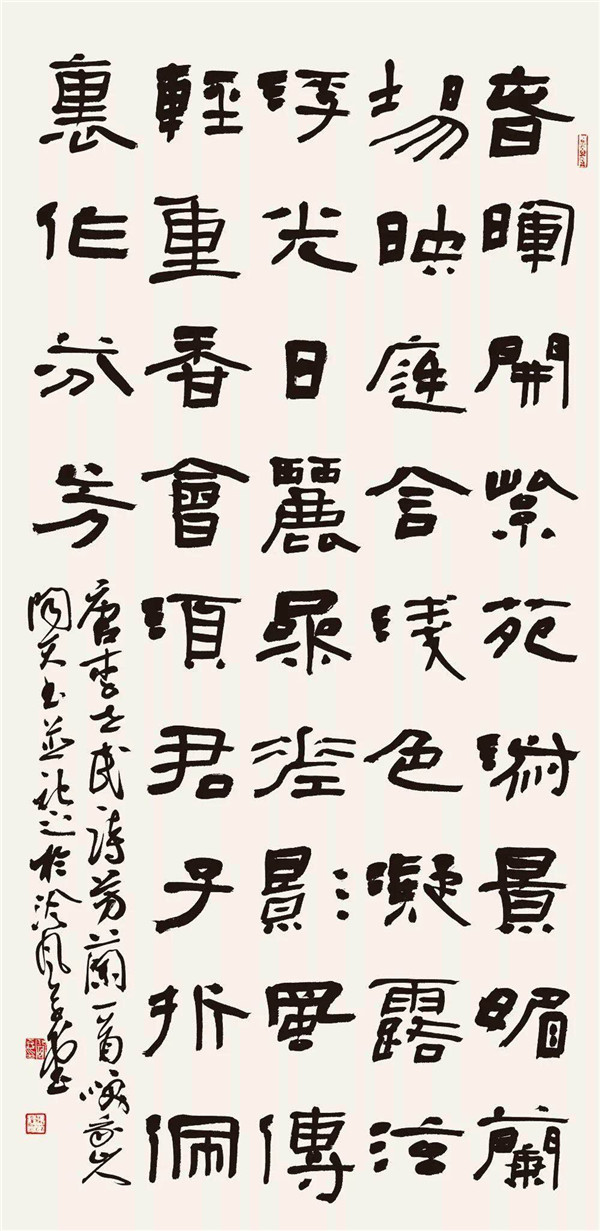 春暉開紫苑淑景媚蘭
場映庭含淺色凝露泫
浮光日麗參差影風傳
輕重香會須君子折佩
裏作芬芳
唐李世民詩芳蘭一首
書並記之於